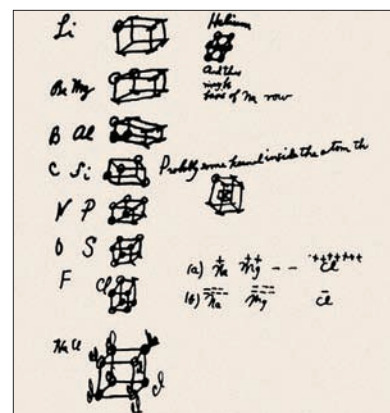 Li
Helium
Be Mg
And this
might
have of Na row
B Al
C Si
Probably some found inside the atom th
N P
O S
F Cl
(a) + Na ++ Mg - - +++++++ Cl
(b) Na Mg - Cl
Na Cl